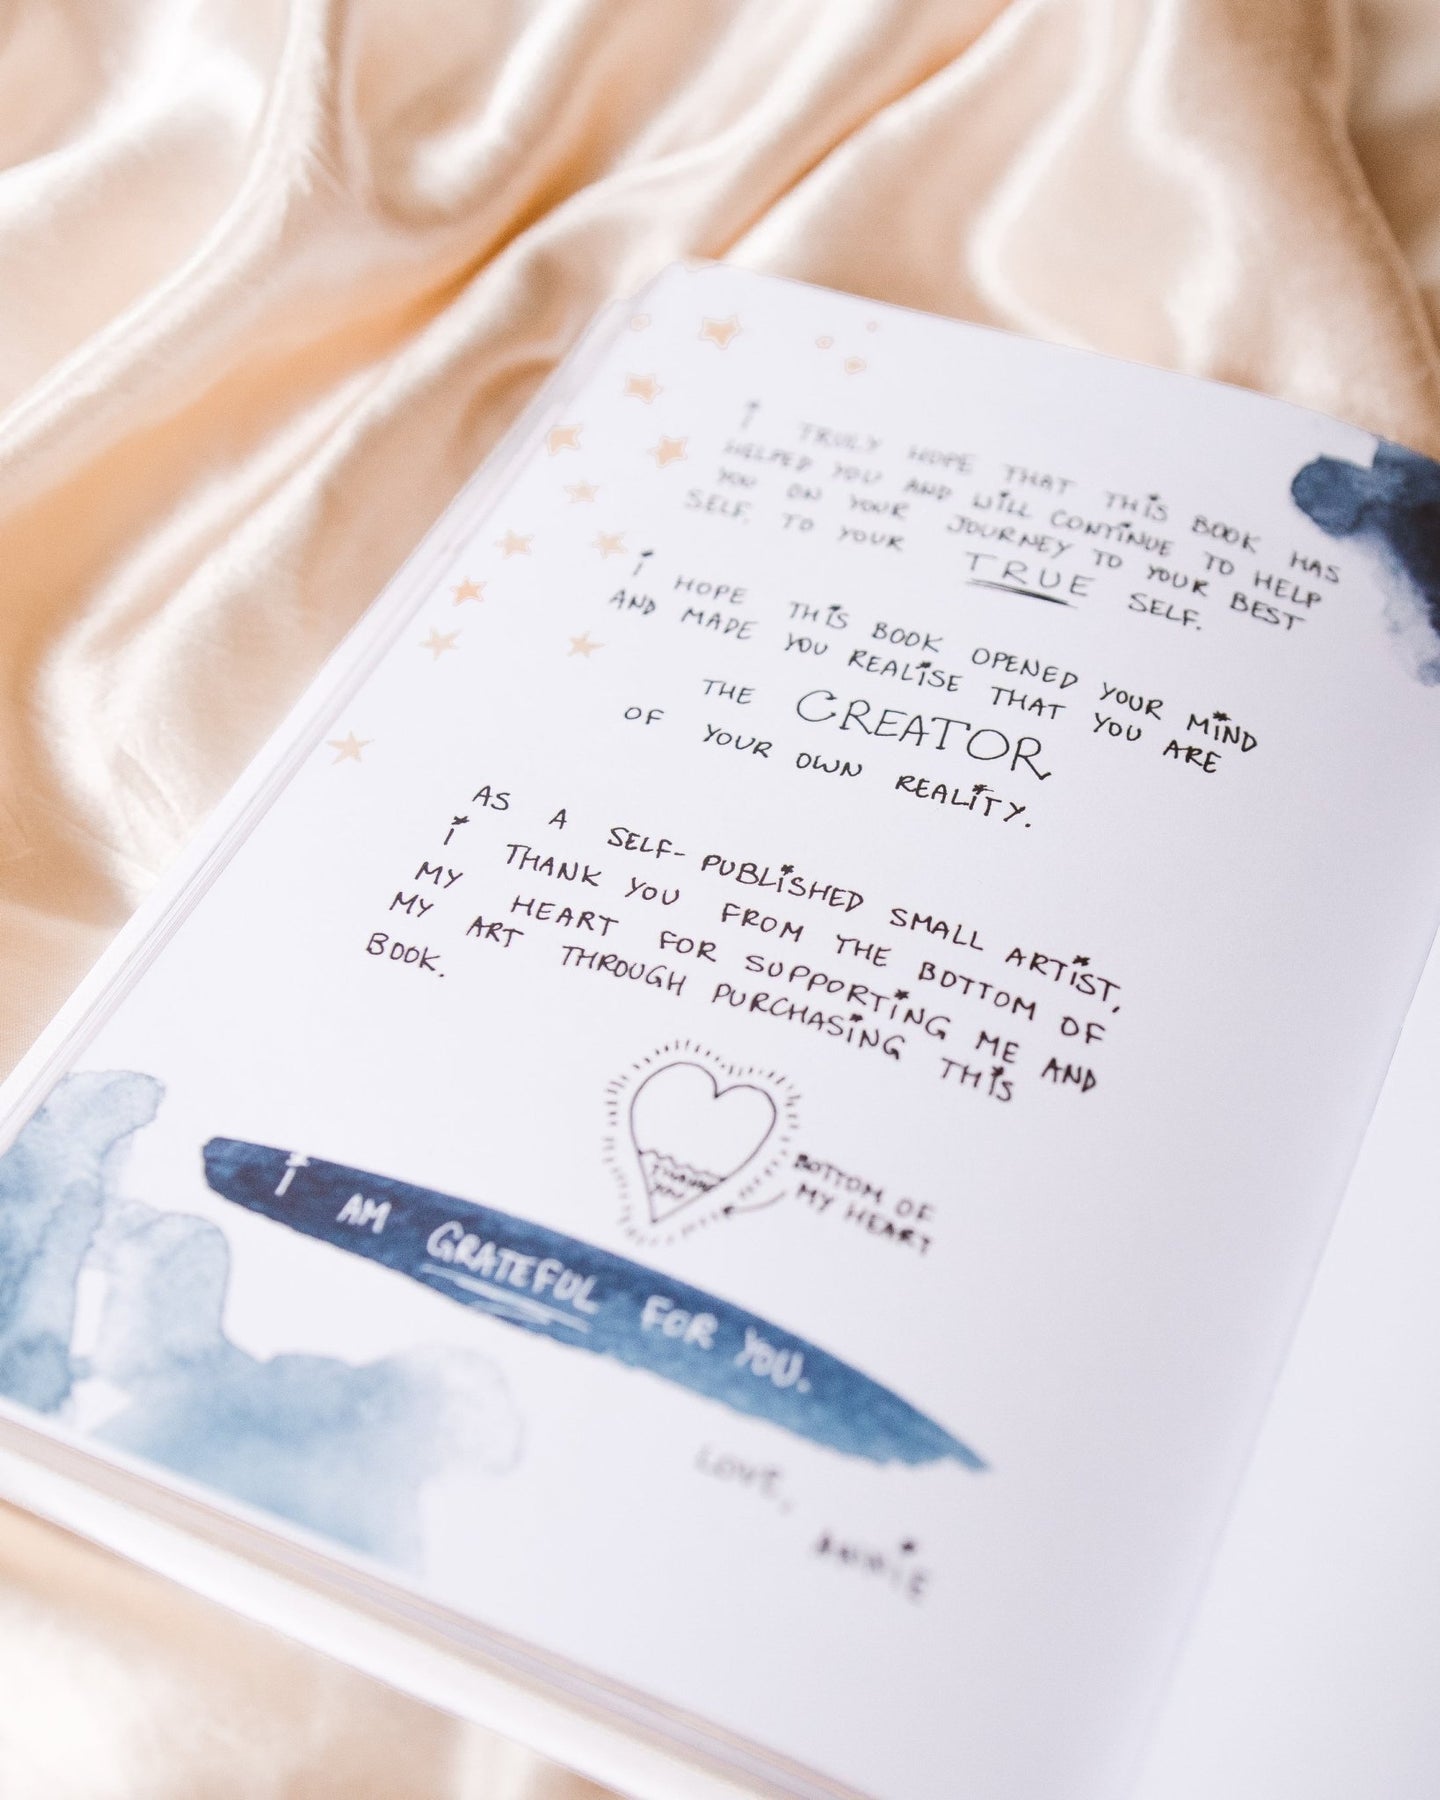 i TRULY HOPE THAT THiS BOOK HAS
HELPED YOU AND WiLL CONTiNUE TO HELP
YOU ON YOUR JOURNEY TO YOUR BEST
SELF. TO YOUR TRUE SELF.
i HOPE THiS BOOK OPENED YOUR MiND
AND MADE YOU REALiSE THAT YOU ARE
THE CREATOR
OF YOUR OWN REALiTY.
AS A SELF-PUBLiSHED SMALL ARTiST,
i THANK YOU FROM THE BOTTOM OF
MY HEART FOR SUPPORTiNG ME AND
MY ART THROUGH PURCHASiNG THiS
BOOK.
THANK
YOU
BOTTOM OF
MY HEART
i AM GRATEFUL FOR YOU.
LOVE,
ANNiE